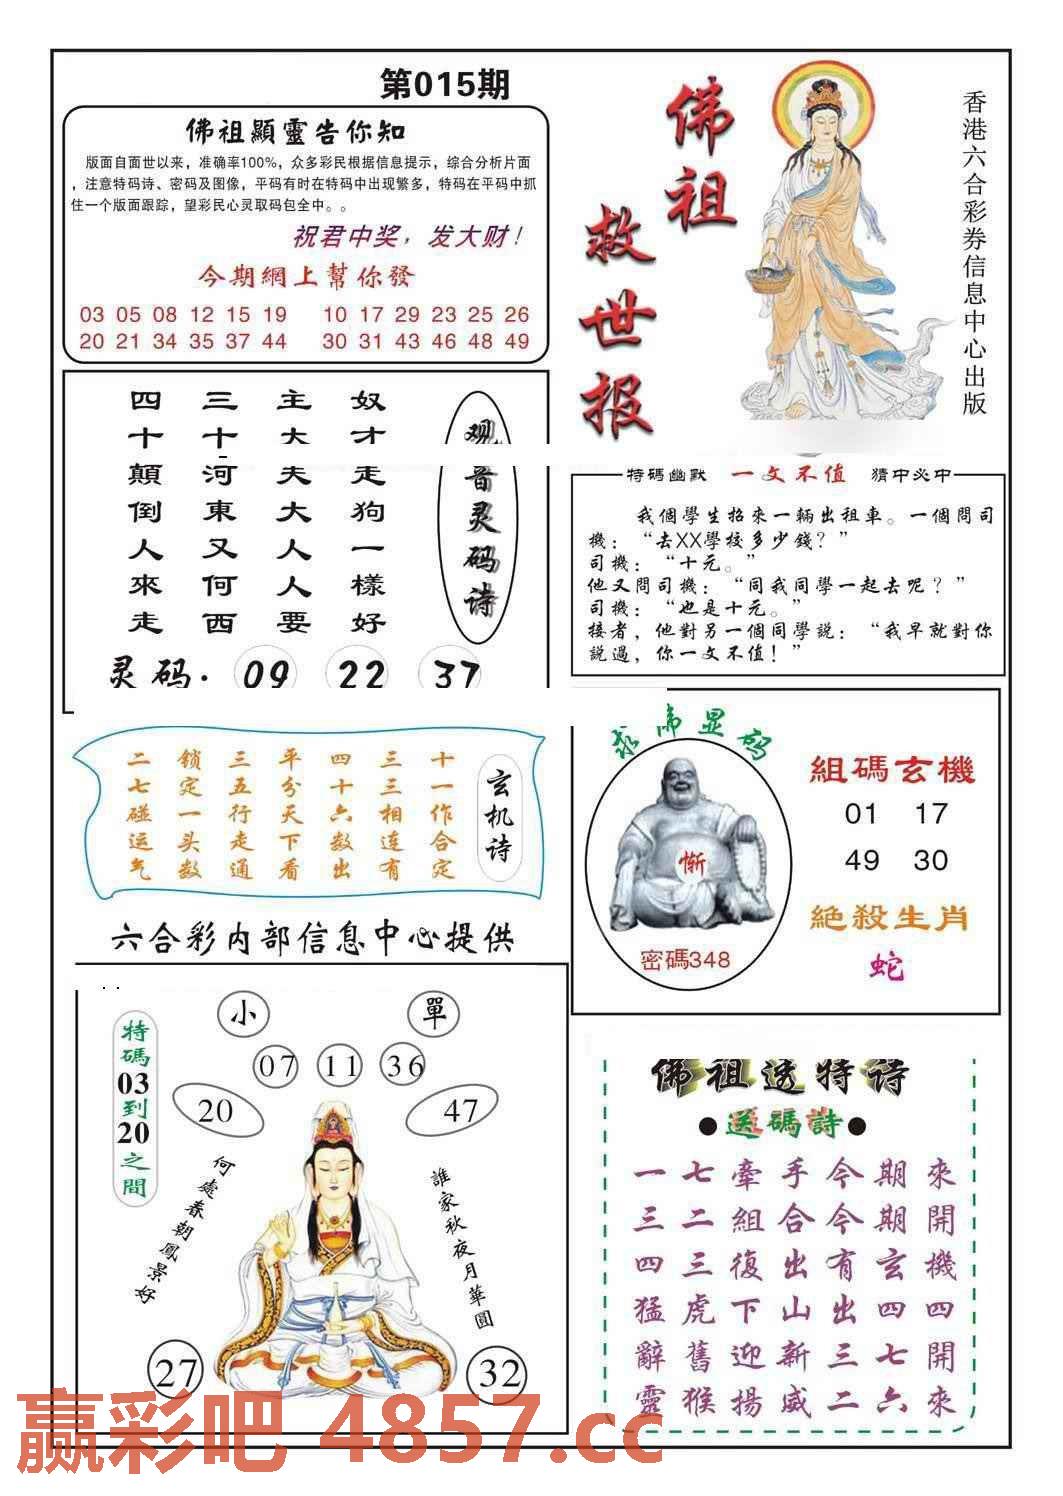 第015期
佛祖顯靈告你知
版面自面世以来，准确率100%，众多彩民根据信息提示，综合分析片面
，注意特码诗、密码及图像，平码有时在特码中出现繁多，特码在平码中抓
住一个版面跟踪，望彩民心灵取码包全中。。
祝君中奖，发大财！
今期網上幫你發
03 05 08 12 15 19 10 17 29 23 25 26
20 21 34 35 37 44 30 31 43 46 48 49
佛祖
救世报
香港六合彩券信息中心出版
观音灵码诗
奴才走狗一樣好
主大夫大人人要
三十河東又何西
四十顛倒人來走
灵码. 09 22 37
特碼幽默 一文不值 猜中必中
我個學生招來一輛出租車。一個問司
機：“去XX學校多少錢？”
司機：“十元。”
他又問司機：“同我同學一起去呢？”
司機：“也是十元。”
接者，他對另一個同學説：“我早就對你
説過，你一文不值！”
玄机诗
十一作合定
三三相连有
四十六数出
平分天下看
三五行走通
锁定一头数
二七碰运气
六合彩内部信息中心提供
显码
惭
密碼348
組碼玄機
01 17
49 30
絕殺生肖
蛇
特碼03到20之間
小 單
07 11 36
20 47
何處春朝鳳景好
誰家秋夜月華圓
27 32
佛祖透特诗
●送碼詩●
一七牽手今期來
三二組合今期開
四三復出有玄機
猛虎下山出四四
辭舊迎新三七開
靈猴揚威二六來
赢彩吧 4857.cc